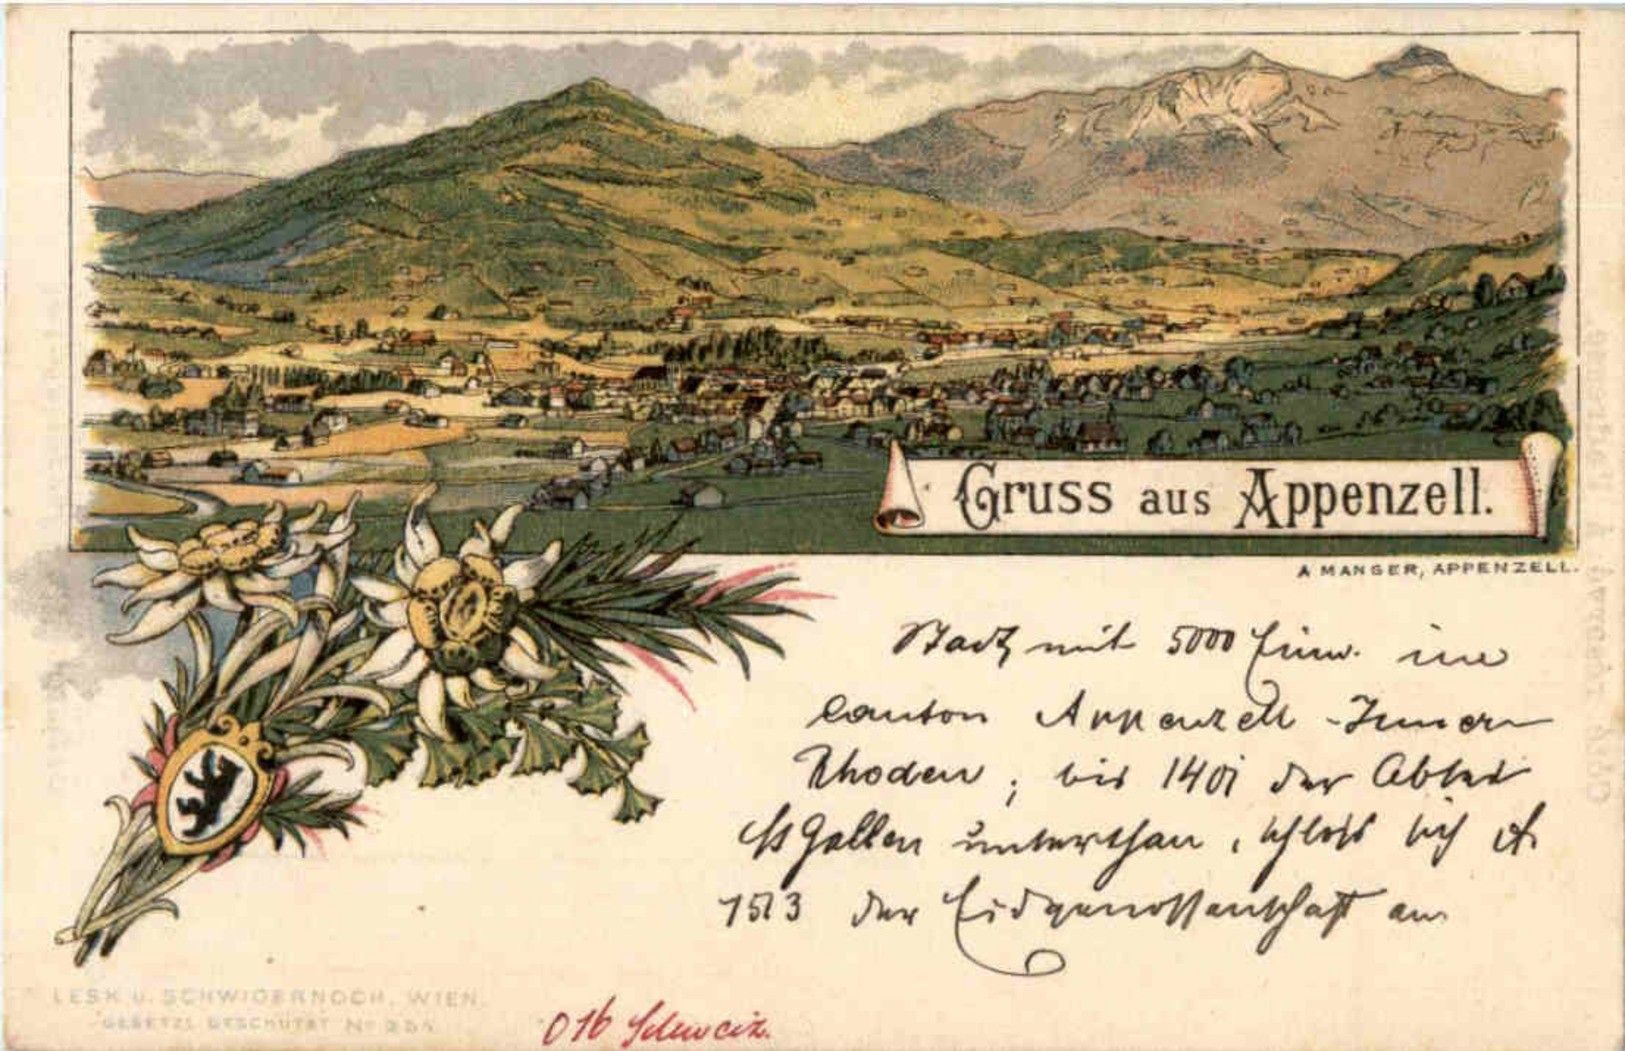 Gruss aus Appenzell.
A MANSER, APPENZELL.
Stadt mit 5000 Einw. im
Canton Appenzell-Innern
Rhoden; bis 1401 der Abtei
St Gallen unterthan, schloß sich
1513 der Eidgenossenschaft an
LESK U. SCHWIDERNOCH, WIEN.
GESETZL GESCHÜTZT No
016 Schweiz.